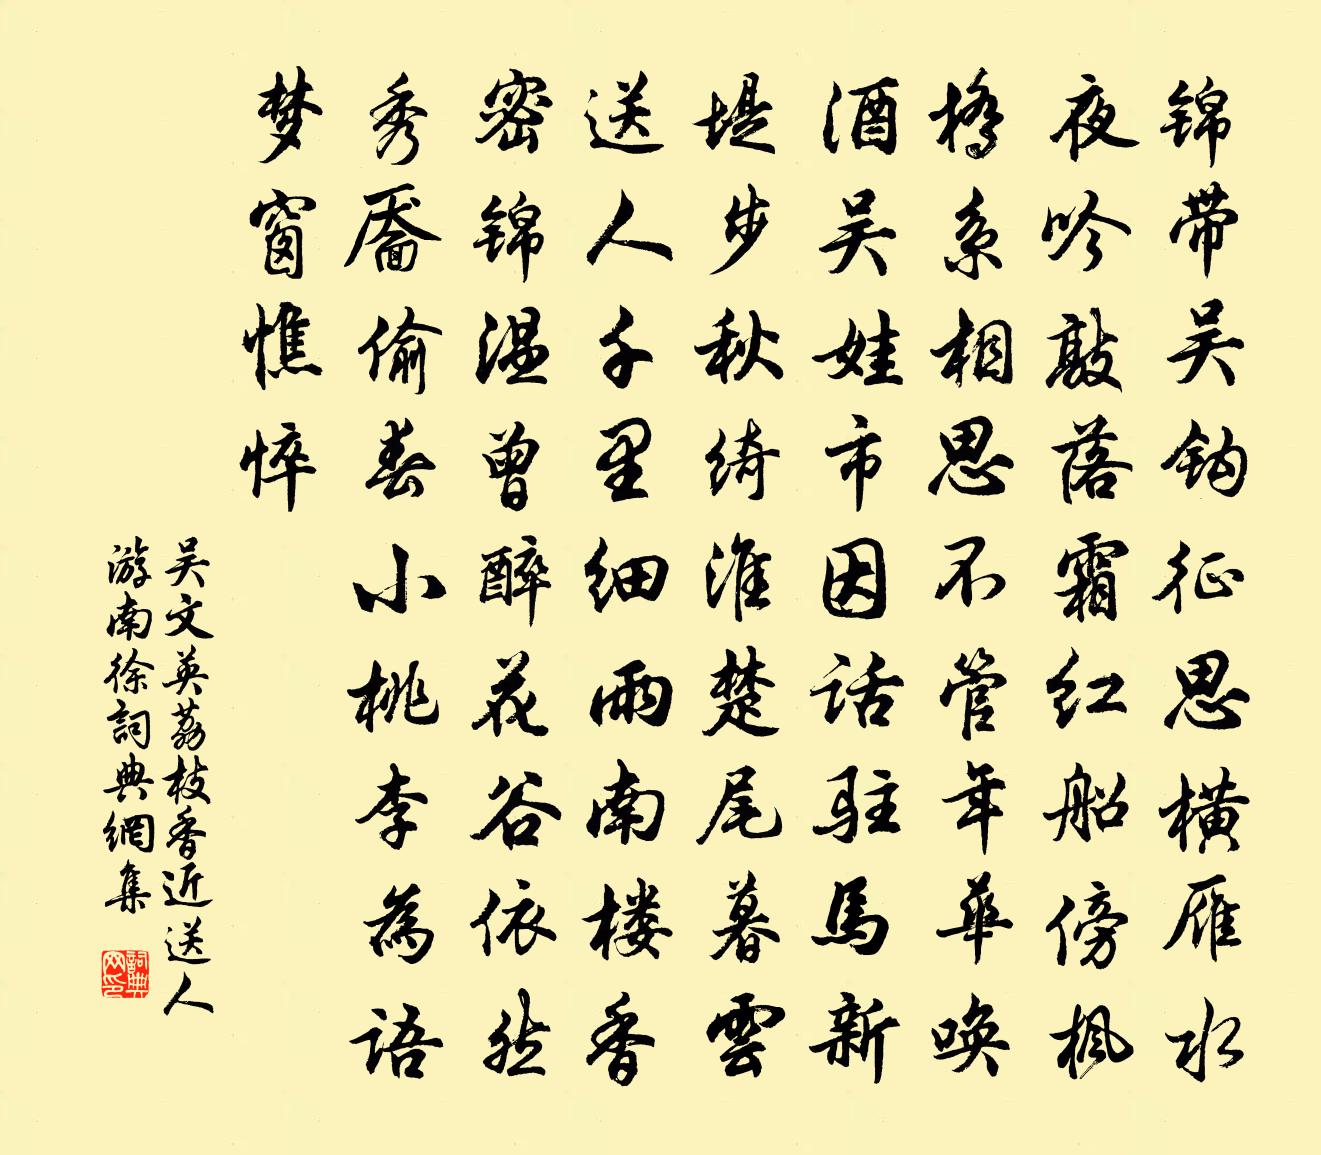 锦带吴钩征思横雁水
夜吟敲落霜红船傍枫
桥系相思不管年华唤
酒吴娃市因话驻马新
堤步秋绮淮楚尾暮雲
送人千里细雨南楼香
密锦温曾醉花谷依然
秀靥偷春小桃李为语
梦窗憔悴
吴文英荔枝香近送人
游南徐詞典網集
詞典网印